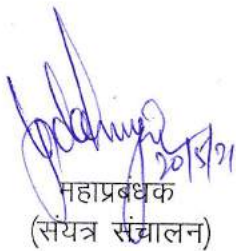 20/5/21
महाप्रबंधक
(संयत्र संचालन)